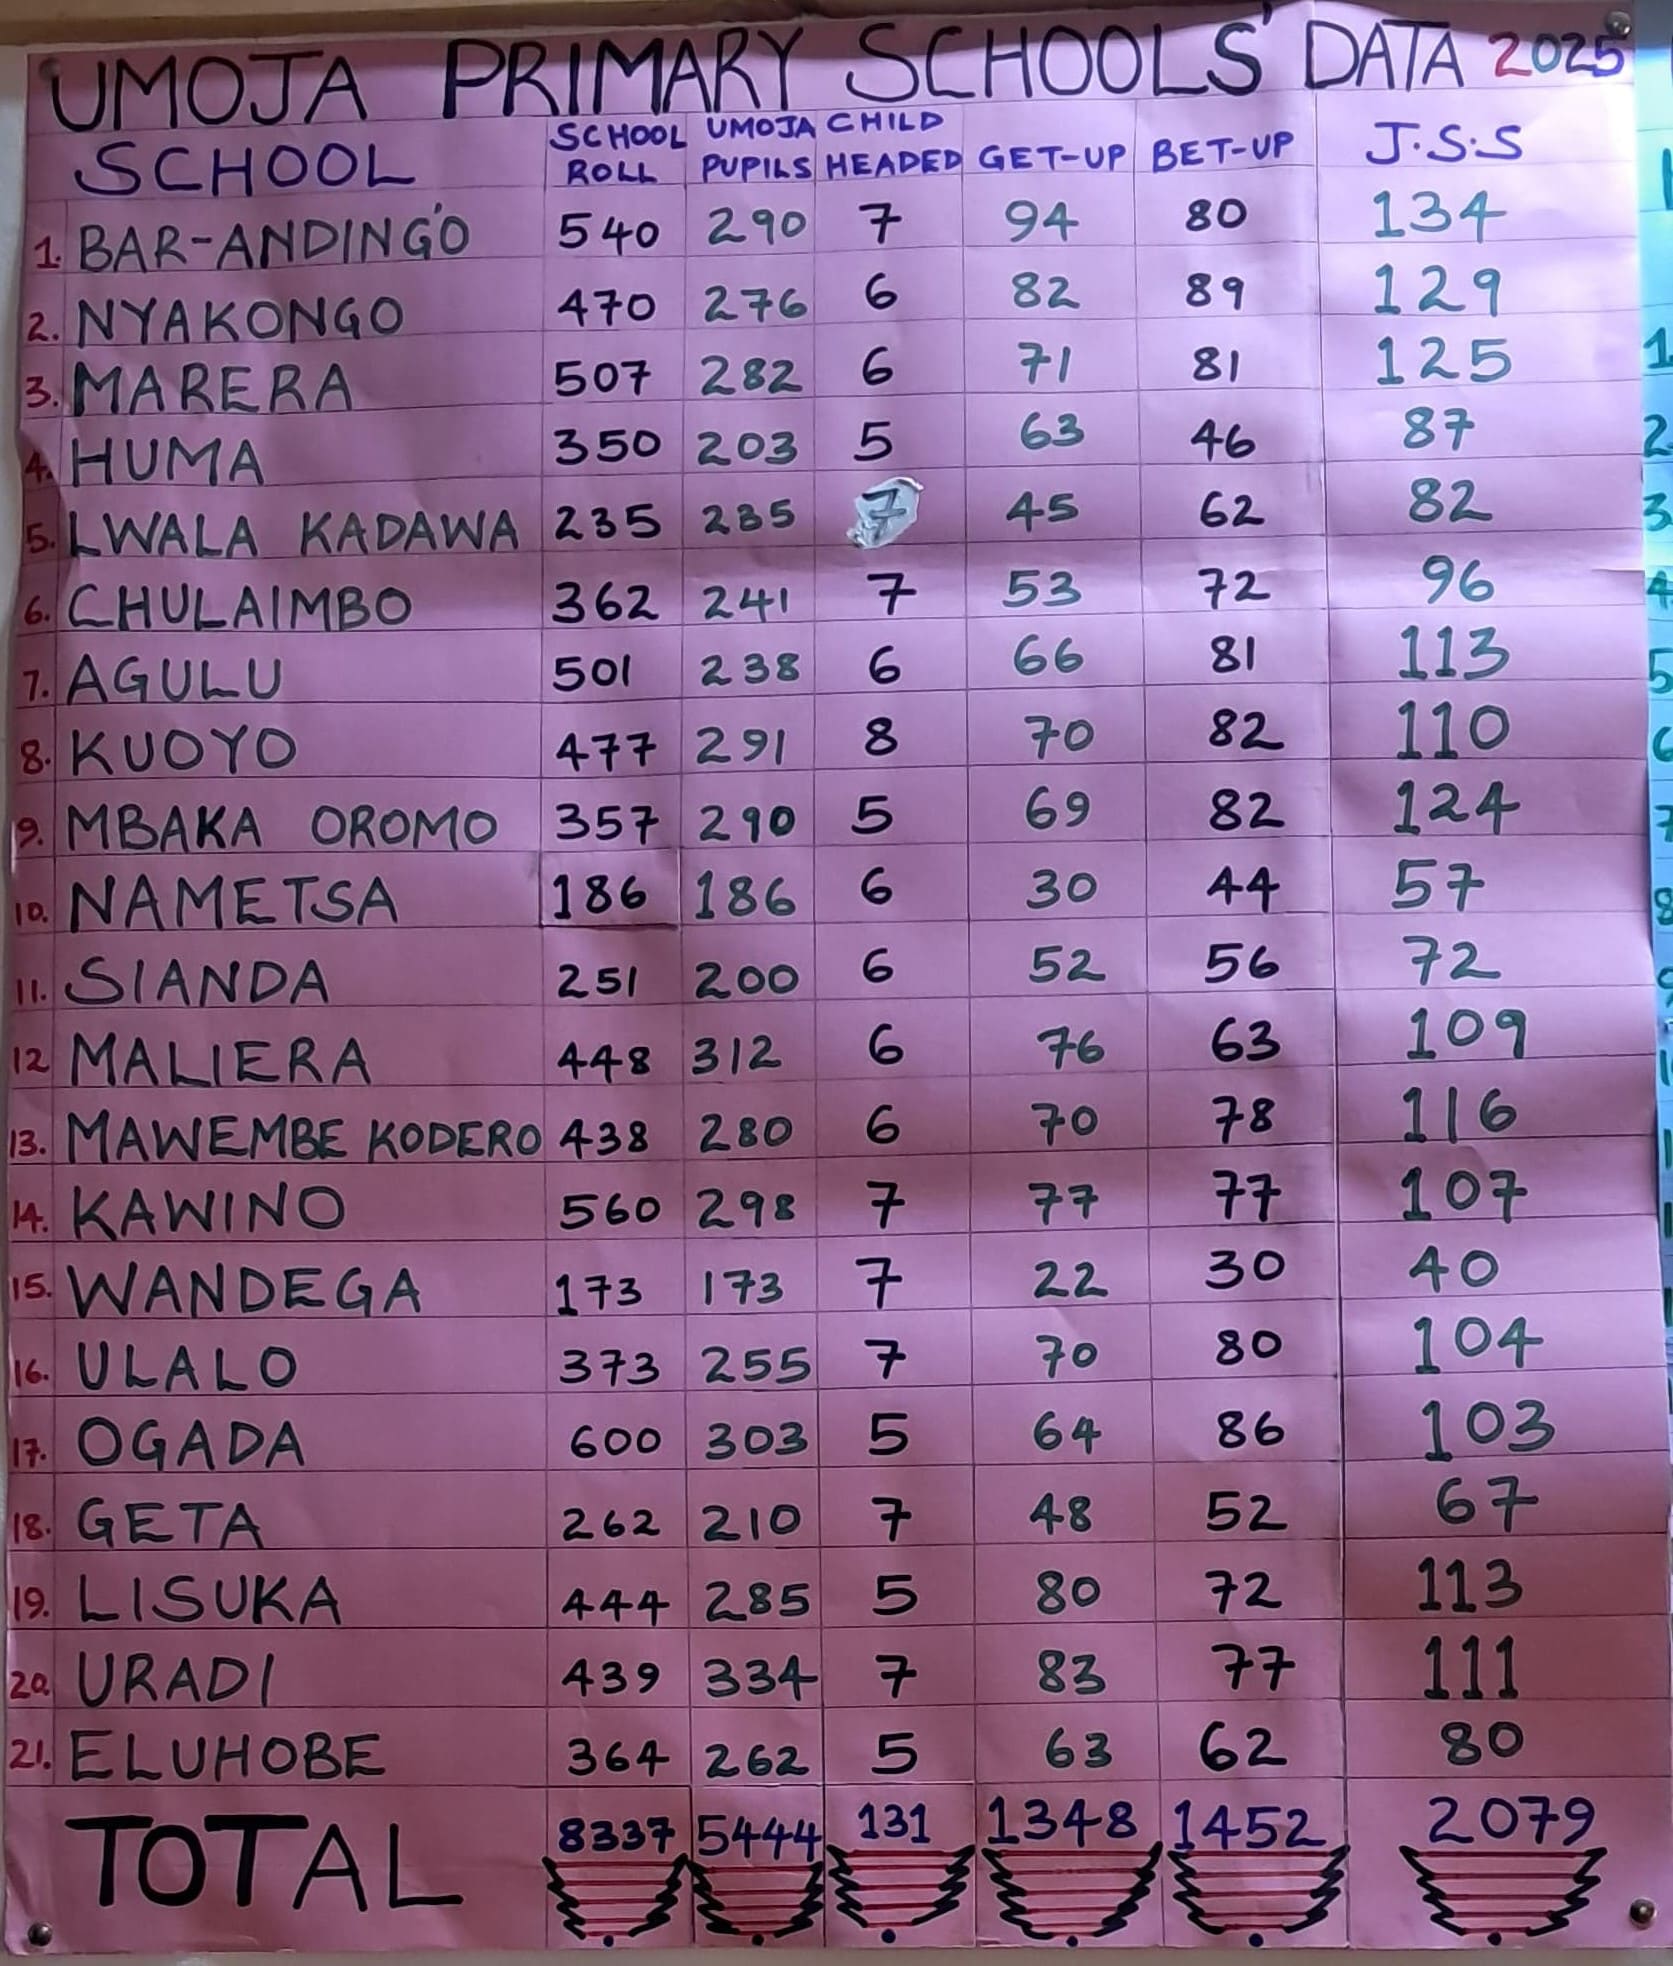 UMOJA PRIMARY SCHOOLS' DATA 2025
SCHOOL SCHOOL ROLL UMOJA PUPILS CHILD HEADED GET-UP BET-UP J.S.S
1. BAR-ANDING'O 540 290 7 94 80 134
2. NYAKONGO 470 276 6 82 89 129
3. MARERA 507 282 6 71 81 125
4. HUMA 350 203 5 63 46 87
5. LWALA KADAWA 235 235 7 45 62 82
6. CHULAIMBO 362 241 7 53 72 96
7. AGULU 501 238 6 66 81 113
8. KUOYO 477 291 8 70 82 110
9. MBAKA OROMO 357 290 5 69 82 124
10. NAMETSA 186 186 6 30 44 57
11. SIANDA 251 200 6 52 56 72
12 MALIERA 448 312 6 76 63 109
13. MAWEMBE KODERO 438 280 6 70 78 116
14. KAWINO 560 298 7 77 77 107
15. WANDEGA 173 173 7 22 30 40
16. ULALO 373 255 7 70 80 104
17. OGADA 600 303 5 64 86 103
18. GETA 262 210 7 48 52 67
19. LISUKA 444 285 5 80 72 113
20. URADI 439 334 7 83 77 111
21. ELUHOBE 364 262 5 63 62 80
TOTAL 8337 5444 131 1348 1452 2079